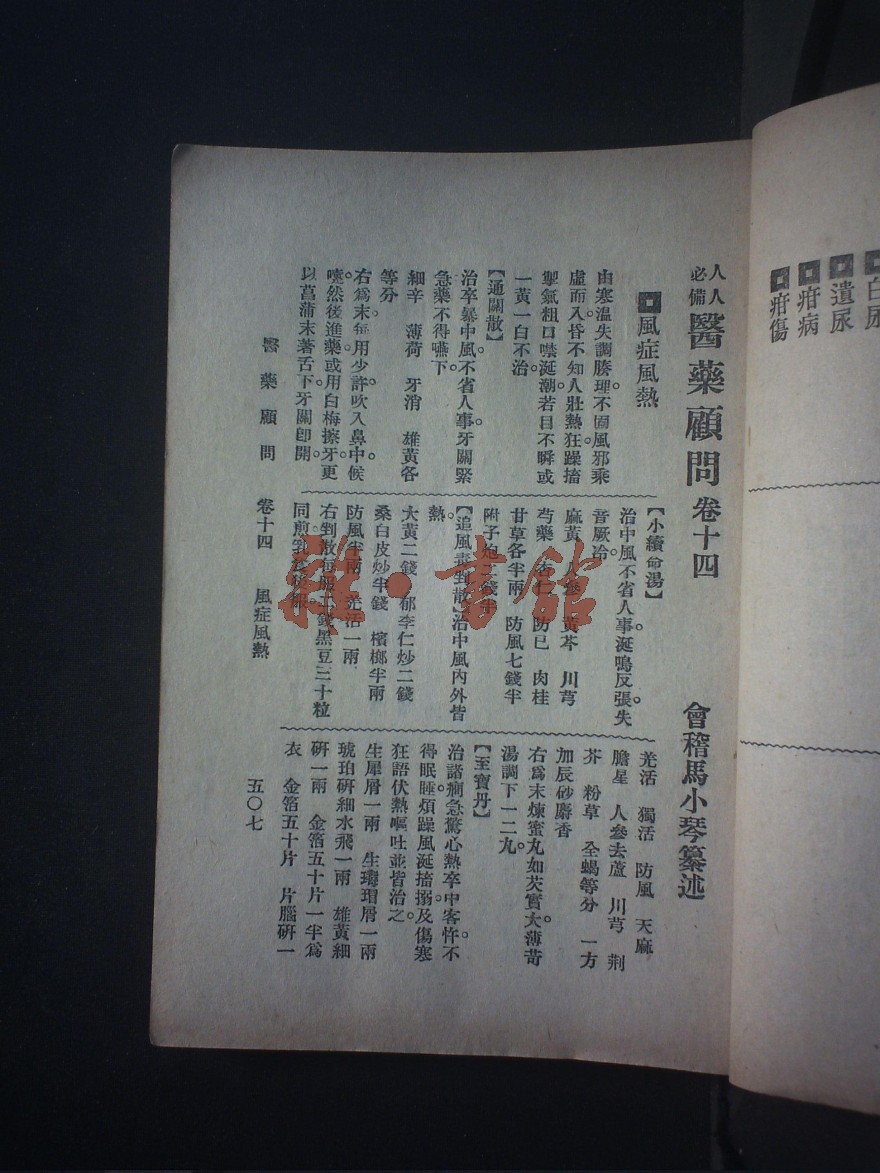 人人必備 醫藥顧問 卷十四 會稽馬小琴纂述
風症風熱
由寒溫失調。腠理不固。風邪乘
虛而入。昏不知人。壯熱狂躁。搐
掣氣粗。口噤涎潮。若目不瞬。或
一黃一白不治。
【通關散】
治卒暴中風。不省人事。牙關緊
急。藥不得嚥下。
細辛 薄荷 牙消 雄黃各
等分
右爲末。每用少許。吹入鼻中。候
嚏。然後進藥。或用白梅擦牙。更
以菖蒲末著舌下。牙關卽開。
【小續命湯】
治中風不省人事。涎鳴反張。失
音厥冷。
麻黃 人參 黃芩 川芎
芍藥 杏仁 防已 肉桂
甘草各半兩 防風七錢半
附子炮二錢
【追風毒剉散】治中風內外皆
熱。
大黃二錢 郁李仁炒二錢
桑白皮炒半錢 檳榔半兩
防風半兩 羌活一兩
右剉散。每服二錢。黑豆三十粒
同煎
羌活 獨活 防風 天麻
膽星 人參去蘆 川芎 荆
芥 粉草 全蝎等分 一方
加辰砂麝香
右爲末。煉蜜丸如芡實大。薄荷
湯調下一二丸。
【至寶丹】
治諸癇急驚心熱。卒中客忤。不
得眠睡。煩躁風涎搐搦。及傷寒
狂語。伏熱嘔吐。並皆治之。
生犀屑一兩 生瑇瑁屑一兩
琥珀硏細水飛一兩 雄黃細
硏一兩 金箔五十片一半爲
衣 金箔五十片 片腦硏一
醫藥顧問 卷十四 風症風熱 五〇七
白尿
遺尿
疳病
疳傷
雜·書館